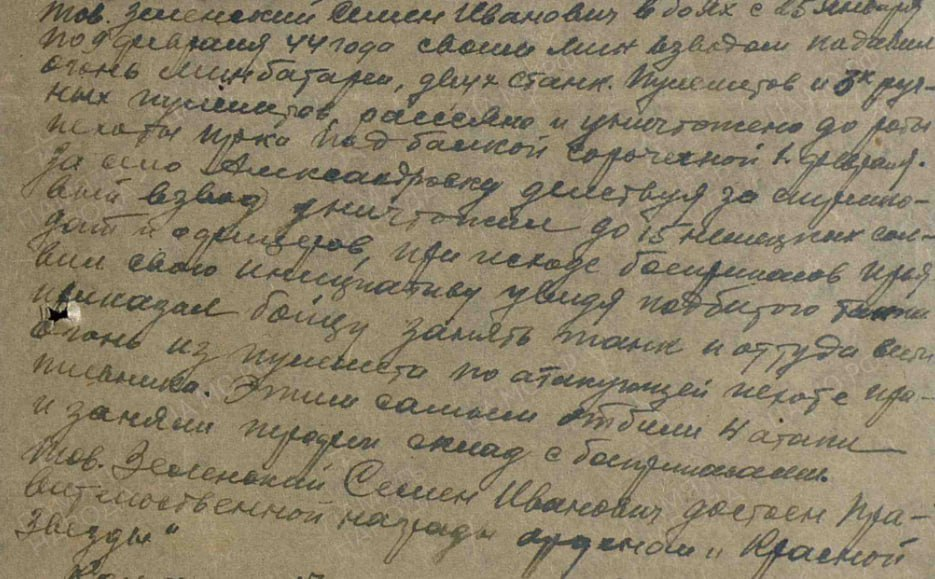 тов. Зеленский Семен Иванович в боях с 25 января
по 9 февраля 44 года своим мин взводом подавил
огонь минбатареи, двух станк. пулеметов и 3х руч-
ных пулеметов, рассеяно и уничтожено до роты
пехоты пр-ка под балкой Сорочечной 2 февраля.
За село Александровку действуя за стрелко-
вый взвод уничтожил до 15 немецких сол-
дат и офицеров, при исходе боеприпасов проя
вил свою инициативу увидя подбитого танка
приказал бойцу занять танк и оттуда вести
огонь из пулемета по атакующей пехоте про-
тивника. Этим самым отбили 4 атаки
и заняли склад с боеприпасами.
тов. Зеленский Семен Иванович достоен Пра-
вительственной награды орденом и Красной
Звезды"